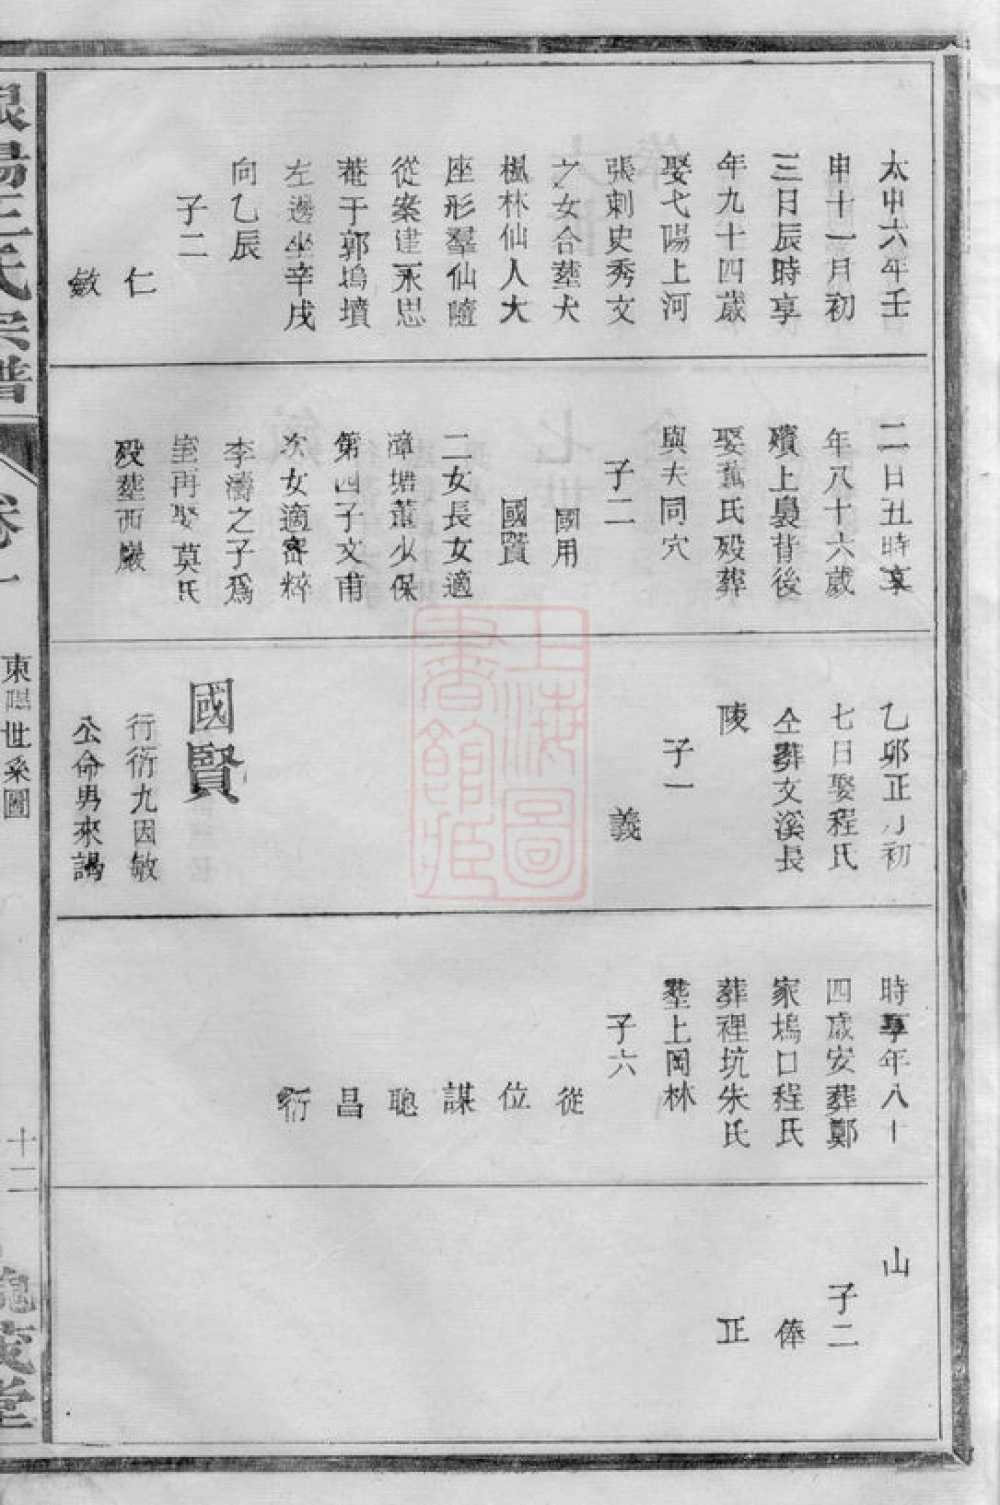 太中六年壬
申十一月初
三日辰時享
年九十四歲
娶弋陽上河
張刺史秀文
之女合塟大
楓林仙人大
座形羣仙隨
從案建永思
菴于郭塢墳
左邊坐辛戌
向乙辰
子二
仁
敏
二日丑時享
年八十六歲
殯上㠯背後
娶舊氏殁葬
與夫同穴
子二
國用
國賢
二女長女適
漳塘董少保
第四子文甫
次女適窑粹
李濤之子爲
室再娶莫氏
殁塟西巖
乙卯正月初
七日娶程氏
仝葬文溪長
陵
子一
義
國賢
行衍九因敏
公命男來謁
時享年八十
四歲安葬鄭
家塢口程氏
葬裡坑朱氏
塟上岡林
子六
從
位
謀
聰
昌
衍
山
子二
俸
正
陽王氏宗譜
卷一
東隄世系圖
十二